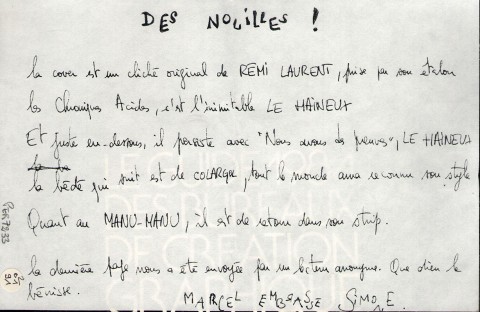 DES NOUILLES !
la cover est un cliché original de REMI LAURENT, prise par son étalon
les Chroniques Acides, c'est l'inimitable LE HAINEUX
Et juste en-dessous, il persiste avec "Nous avons les preuves", LE HAINEUX
la bédé qui suit est de COLARGOL, tout le monde aura reconnu son style
Quant au MANU-MANU, il est de retour dans son strip.
la dernière page nous a été envoyée par un lecteur anonyme. Que dieu le
bénisse.
MARCEL EMBRASSE SIMONE
LE GUIDE
DES BUREAUX
DE CREATION
GRAPHIQUE